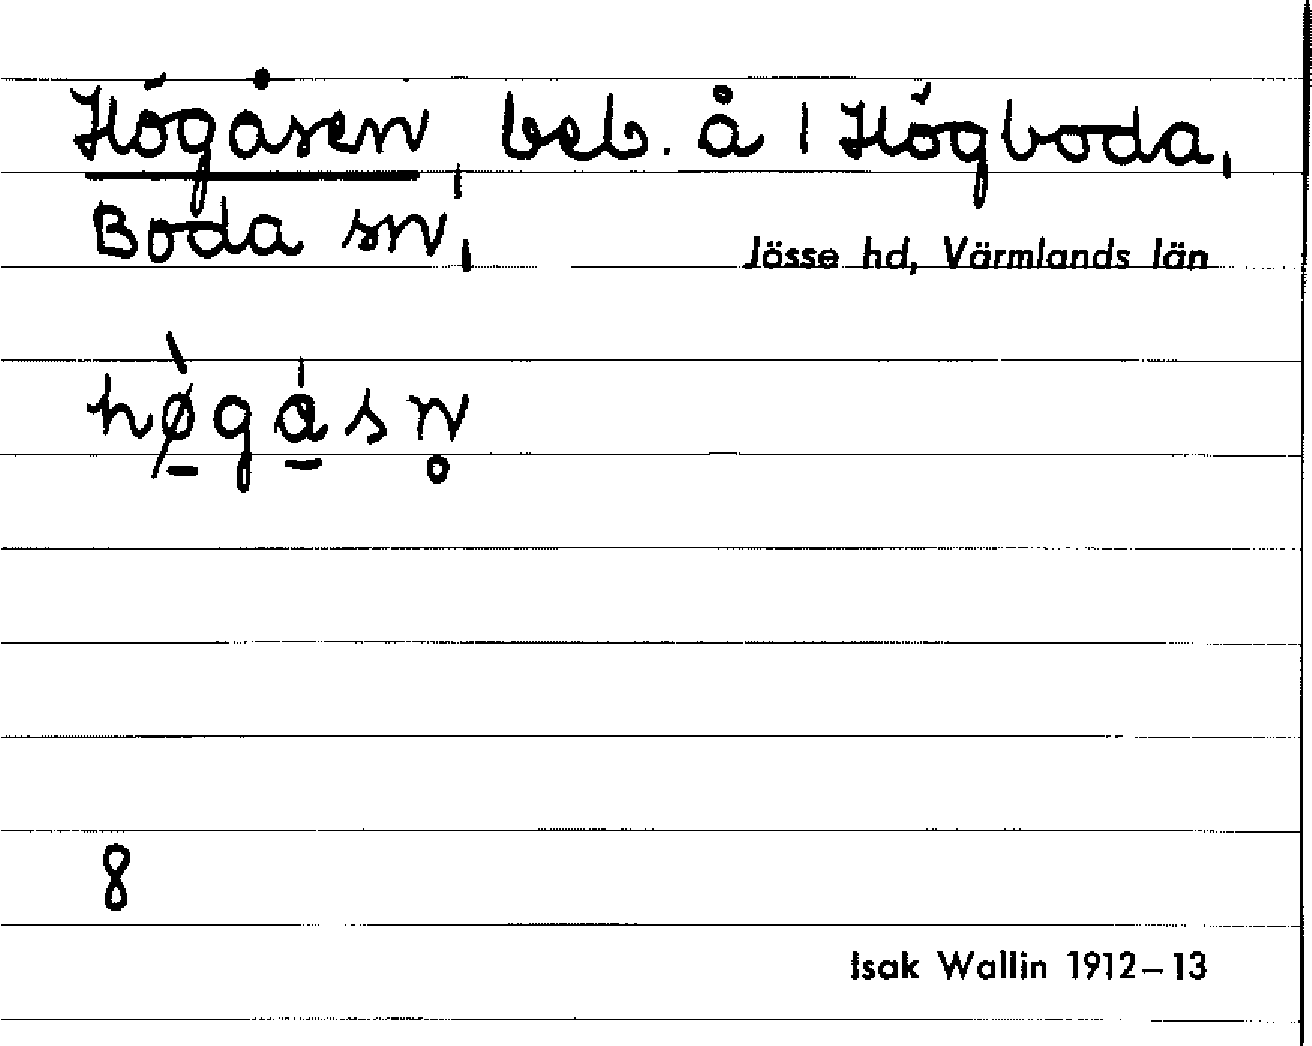 Högåsen, beb. å 1 Högboda,
Boda sn,
Jösse hd, Värmlands län
hø̠̀gȧ̠sn̥
8
Isak Wallin 1912–13